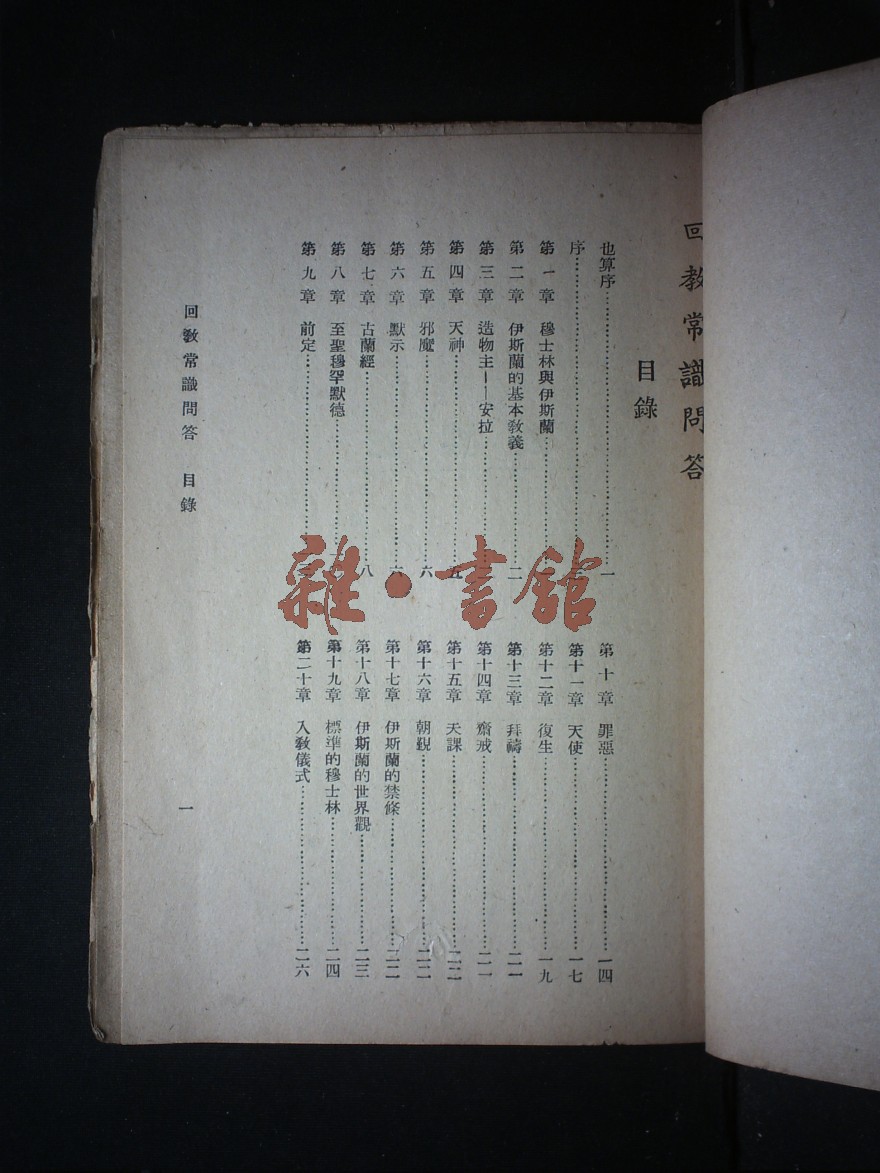 回教常識問答
目錄
也算序 一
序
第一章 穆士林與伊斯蘭
第二章 伊斯蘭的基本教義 二
第三章 造物主——安拉
第四章 天神 五
第五章 邪魔 六
第六章 默示 六
第七章 古蘭經 八
第八章 至聖穆罕默德
第九章 前定
第十章 罪惡 一四
第十一章 天使 一七
第十二章 復生 一九
第十三章 拜禱 二一
第十四章 齋戒 二一
第十五章 天課 二二
第十六章 朝覲 二二
第十七章 伊斯蘭的禁條 二二
第十八章 伊斯蘭的世界觀 二三
第十九章 標準的穆士林 二四
第二十章 入教儀式 二六
回教常識問答 目錄
一
雜·書館